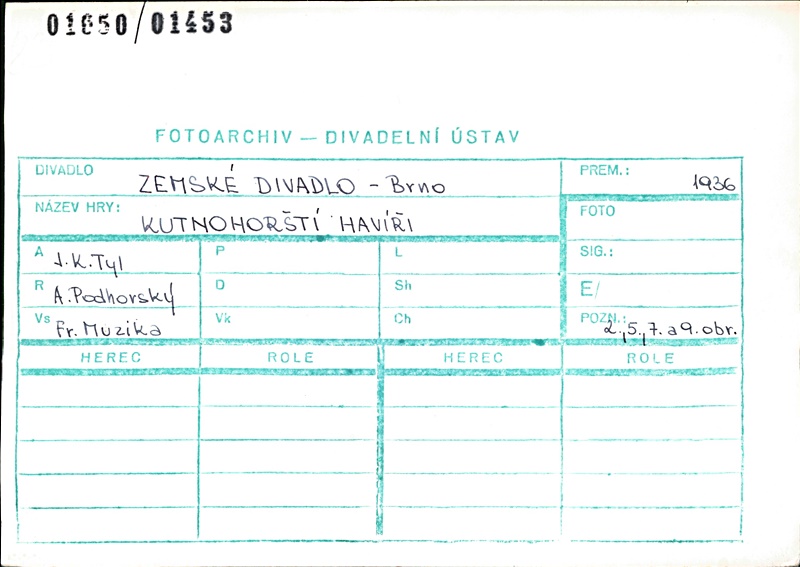 01650/01453
FOTOARCHIV — DIVADELNÍ ÚSTAV
DIVADLO ZEMSKÉ DIVADLO - Brno
PREM.: 1936
NÁZEV HRY: KUTNOHORŠTÍ HAVÍŘI
FOTO
A J.K.Tyl P L SIG.:
R A.Podhorský D Sh E/
Vs Fr.Muzika Vk Ch POZN.: 2.,5.,7. a 9. obr.
HEREC ROLE HEREC ROLE